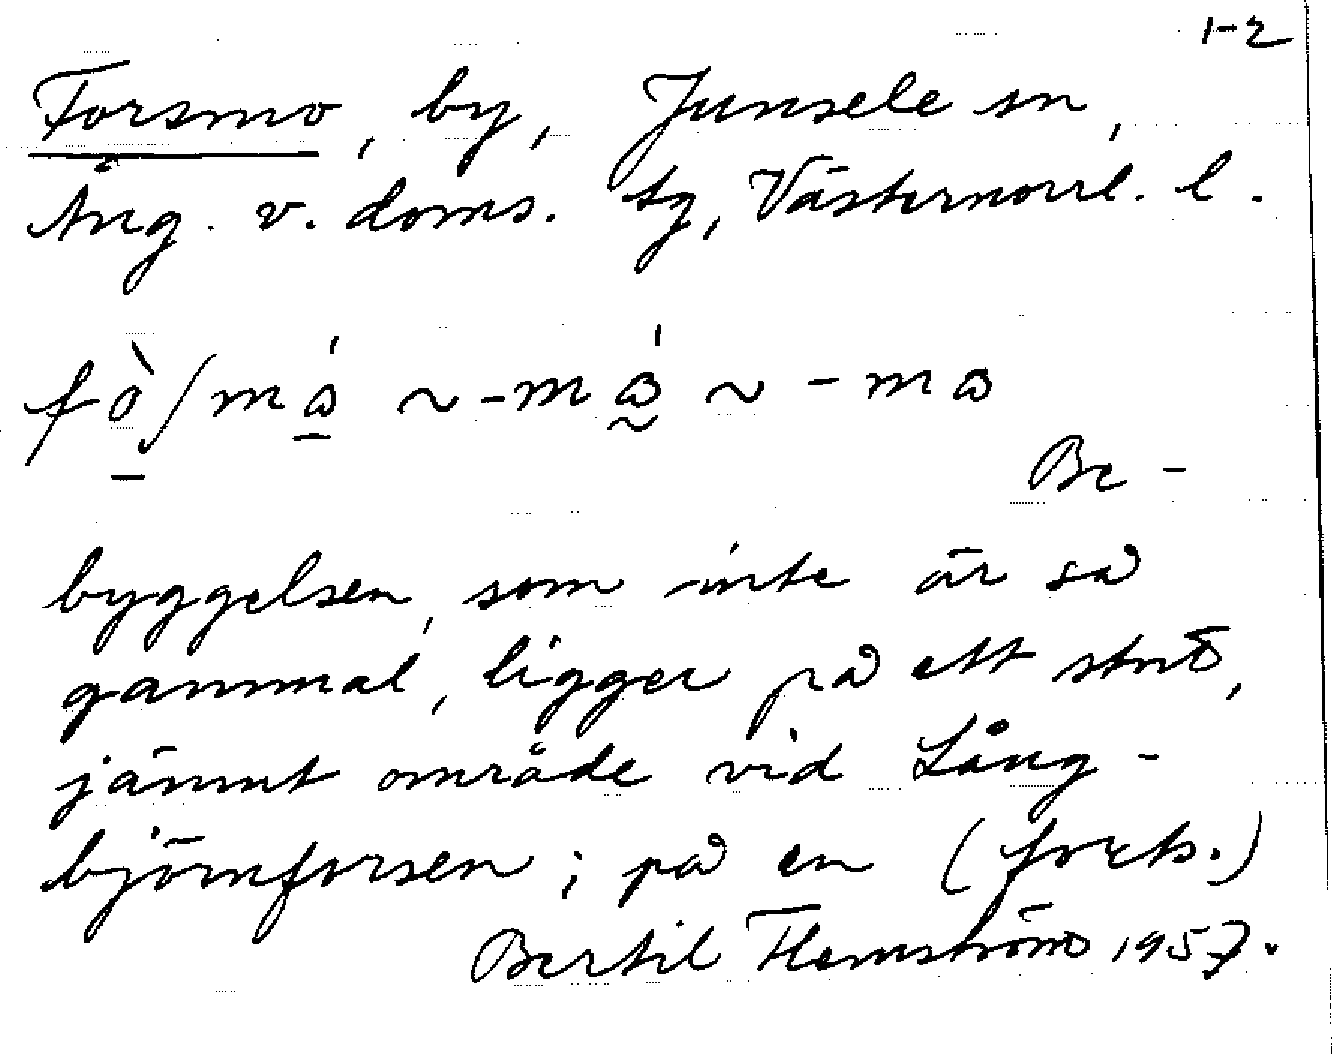 1-2
Forsmo, by, Junsele sn,
Ång. v. doms. tg, Västernorrl. l.
fò̱ʃmɷ̱́ ~ -mɷ̰́ ~ -mɷ
Be-
byggelsen, som inte är så
gammal, ligger på ett stort,
jämnt område vid Lång-
björnforsen; på en (forts.)
Bertil Flemström 1957.